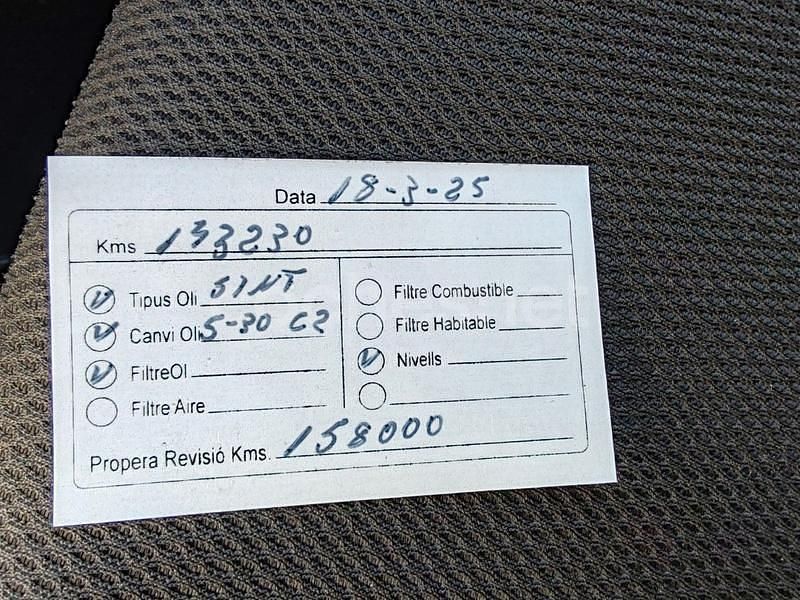 Data 18-3-25
Kms 133230
Tipus Oli SINT
Canvi Oli 5-30 C2
Filtre Ol
Filtre Aire
Filtre Combustible
Filtre Habitable
Nivells
Propera Revisió Kms. 158000